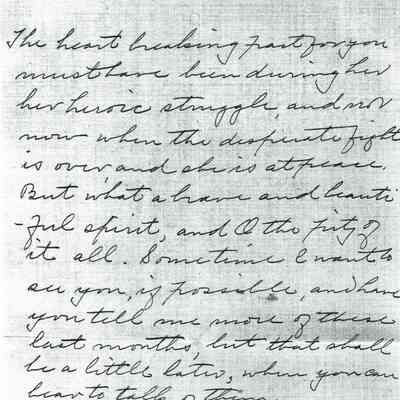 The heart breaking part for you
must have been during her
her heroic struggle, and not
now when the desperate fight
is over, and she is at peace.
But what a brave and beauti
-ful spirit, and O the pity of
it all. Sometime I want to
see you, if possible, and have
you tell me more of these
last months, but that shall
be a little later, when you can
bear to talk of them.